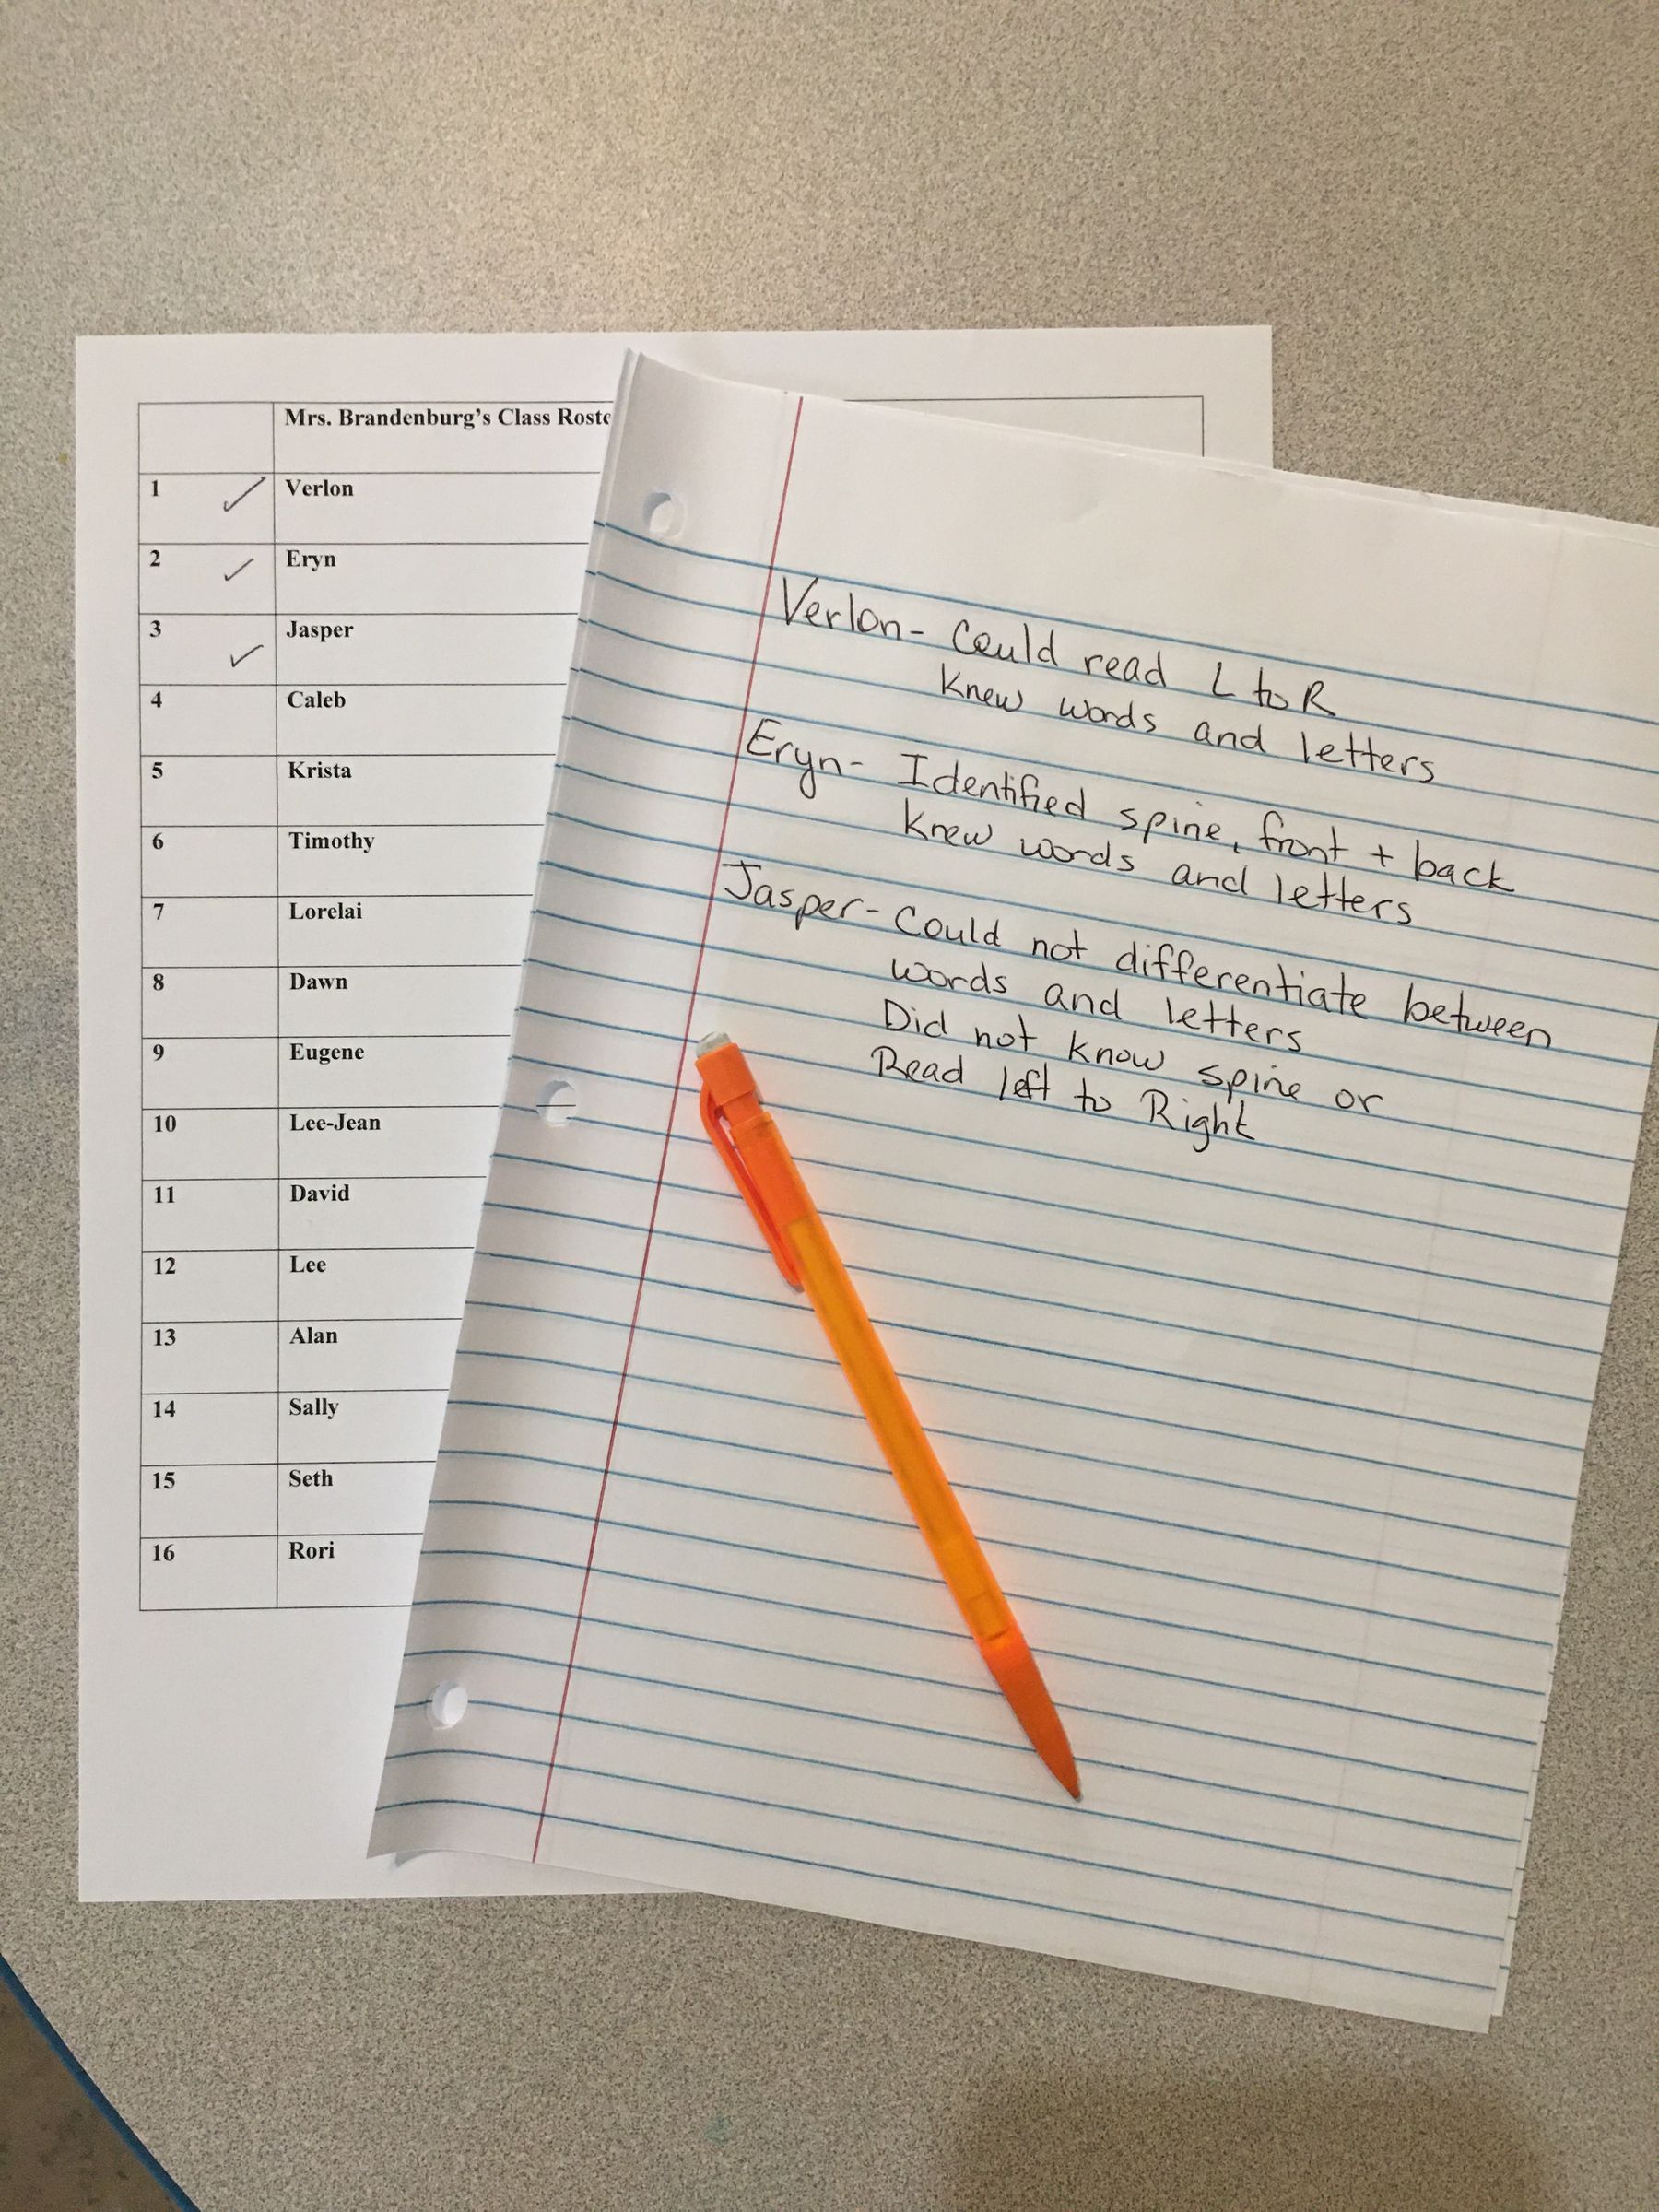 Mrs. Brandenburg's Class Roste
1 ✓ Verlon
2 ✓ Eryn
3 ✓ Jasper
4 Caleb
5 Krista
6 Timothy
7 Lorelai
8 Dawn
9 Eugene
10 Lee-Jean
11 David
12 Lee
13 Alan
14 Sally
15 Seth
16 Rori
Verlon- Could read L to R
Knew words and letters
Eryn- Identified spine, front + back
Knew words and letters
Jasper- Could not differentiate between
words and letters
Did not know spine or
Read left to Right